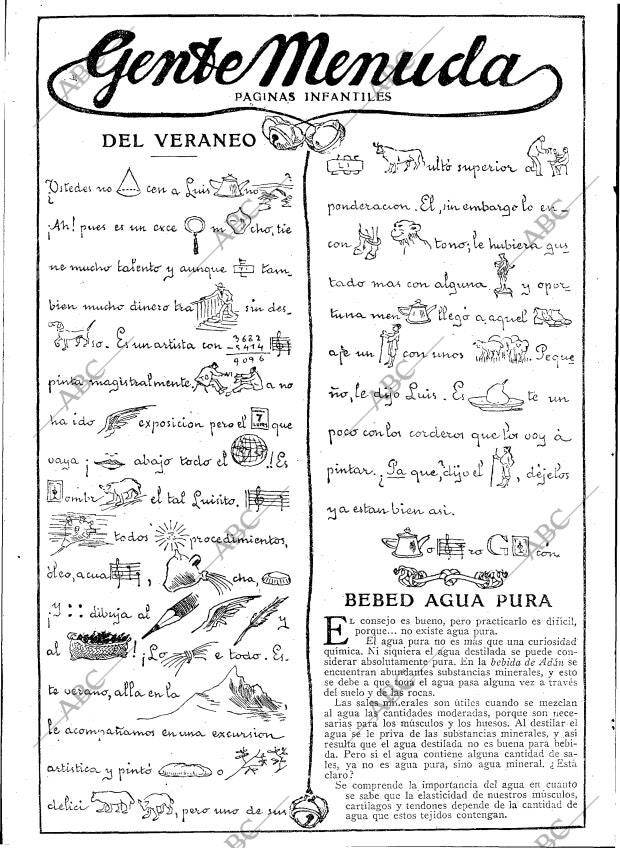 Gente Menuda
PAGINAS INFANTILES
DEL VERANEO
Ustedes no cen a Luis no
¡Ah! pues es un exce m cho, tie
ne mucho talento y aunque tam
bien mucho dinero tra sin des
so. Es un artista con 3622 5474 9096
pinta magistralmente. a no
ha ido exposición pero el 7 LUNES que
vaya ¡ abajo todo el !! Es
ombr el tal Luisito.
todos procedimientos,
óleo, acua , cha,
¡Y :: dibuja al y
al ! ¡Lo e todo. Es-
te verano, alla en la ,
le acompañamos en una excursion
artistica y pintó o
delici , pero uno de sus
ultó superior a
ponderacion. El, sin embargo lo en-
con tono; le hubiera gus
tado mas con alguna y opor
tuna men llegó a aquel
aje un con unos . Peque
ño, le dijo Luis. Es te un
poco con los corderos que los voy á
pintar. ¿Pa que?, dijo el , déjelos
ya estan bien asi.
o ro G cón.
BEBED AGUA PURA
EL consejo es bueno, pero practicarlo es difícil,
porque... no existe agua pura.
El agua pura no es más que una curiosidad
química. Ni siquiera el agua destilada se puede con-
siderar absolutamente pura. En la bebida de Adán se
encuentran abundantes substancias minerales, y esto
se debe a que toda el agua pasa alguna vez a través
del suelo y de las rocas.
Las sales minerales son útiles cuando se mezclan
al agua las cantidades moderadas, porque son nece-
sarias para los músculos y los huesos. Al destilar el
agua se le priva de las substancias minerales, y así
resulta que el agua destilada no es buena para bebi-
da. Pero si el agua contiene alguna cantidad de sa-
les, ya no es agua pura, sino agua mineral. ¿Está
claro?
Se comprende la importancia del agua en cuanto
se sabe que la elasticidad de nuestros músculos,
cartílagos y tendones depende de la cantidad de
agua que estos tejidos contengan.